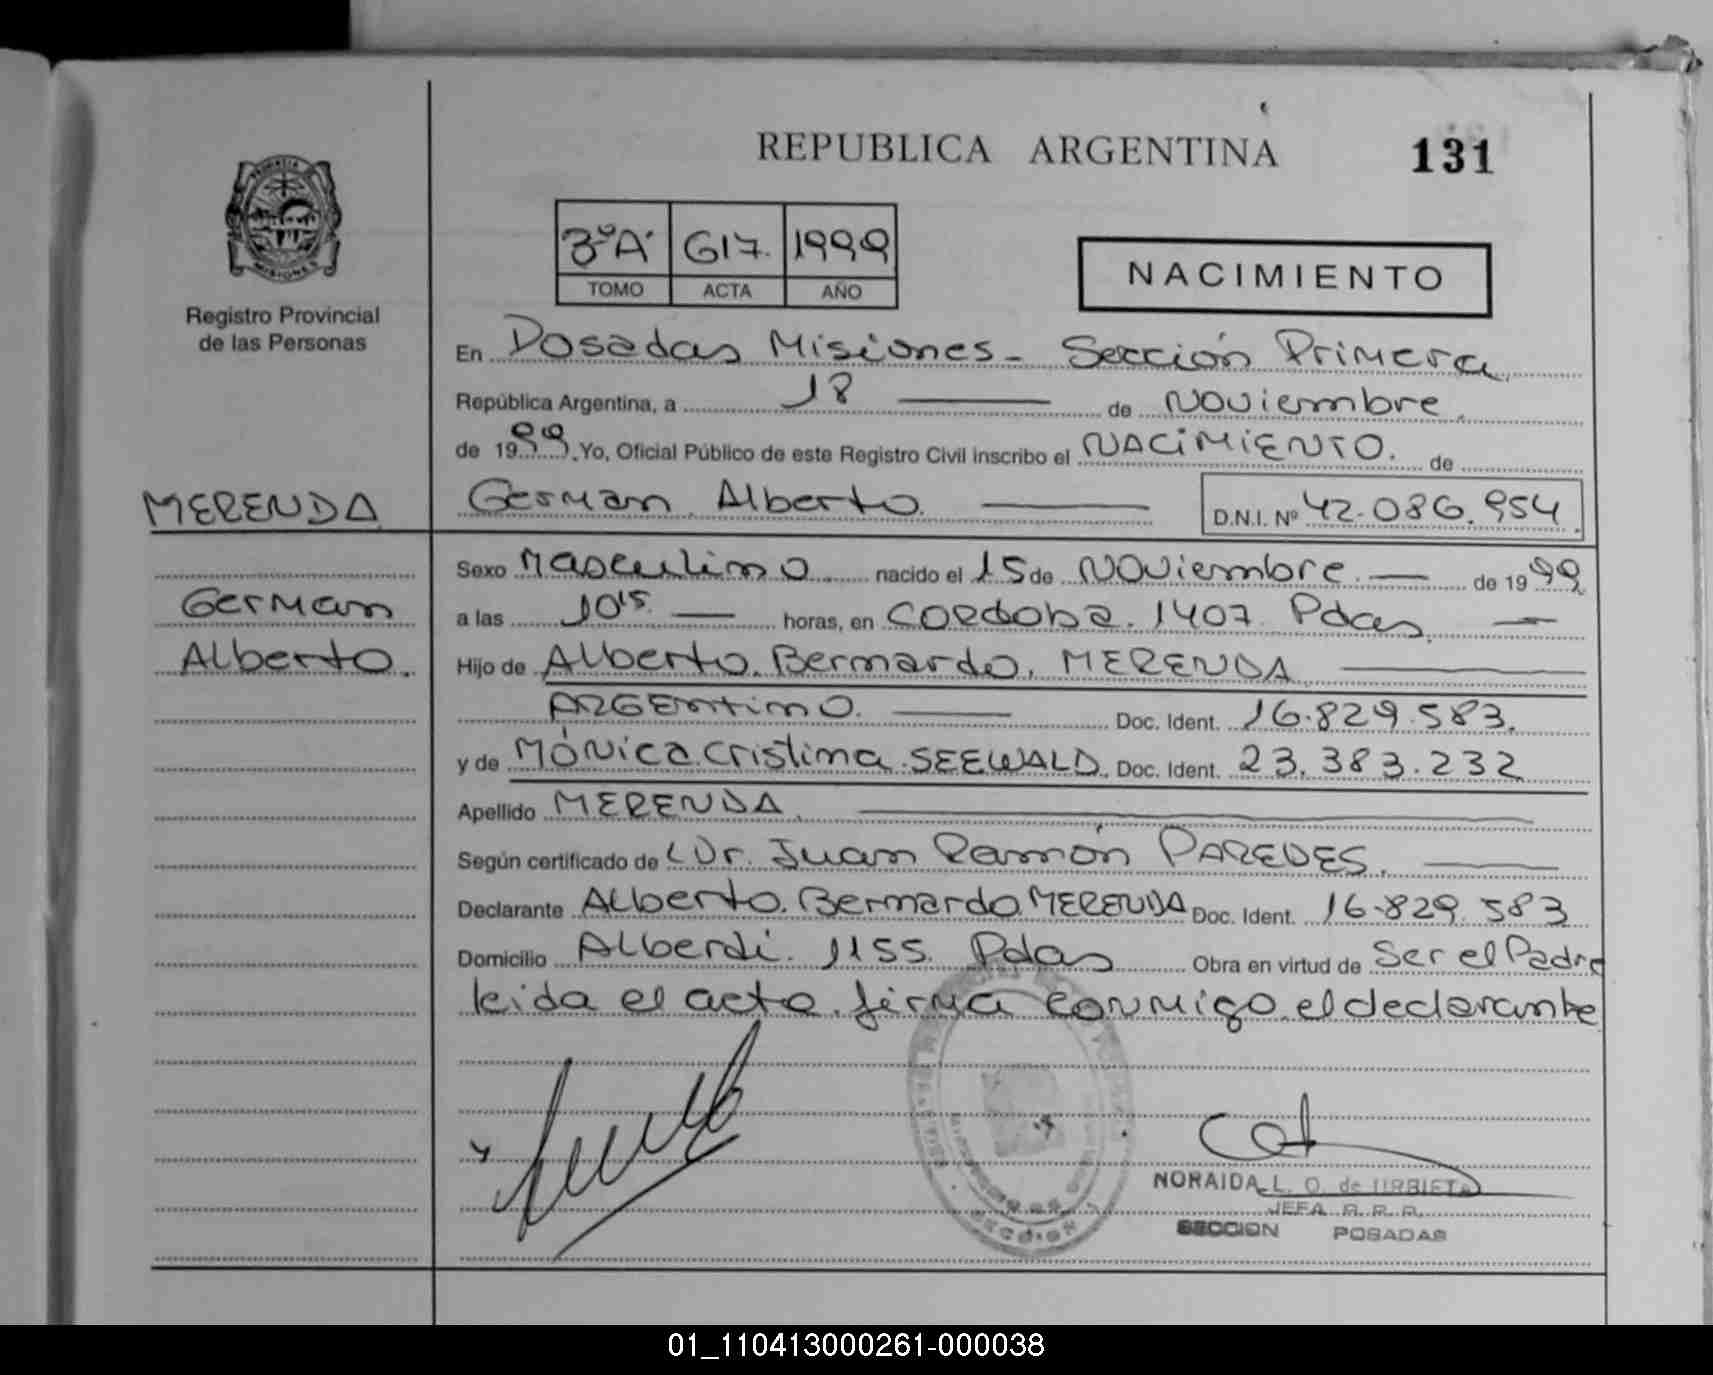 REPUBLICA ARGENTINA
131
3ºA
617.
1999
TOMO
ACTA
AÑO
NACIMIENTO
MISIONES
Registro Provincial
de las Personas
En Posadas Misiones - Sección Primera
República Argentina, a 18 de Noviembre
de 1999. Yo, Oficial Público de este Registro Civil inscribo el NACIMIENTO. de
MERENDA
German Alberto.
D.N.I. Nº 42.086.954
Sexo Masculino nacido el 15 de Noviembre. de 1999
German
a las 10 15. horas, en Cordoba. 1407 Pdas.
Alberto.
Hijo de Alberto. Bernardo. MERENDA
ARGENtino. Doc. Ident. 16.829.583.
y de MÓNica Cristina SEEWALD. Doc. Ident. 23.383.232
Apellido MERENDA.
Según certificado de Dr. Juan Ramón PAREDES.
Declarante Alberto. Bernardo MERENDA Doc. Ident. 16.829.583
Domicilio Alberdi. 1155. Pdas Obra en virtud de Ser el Padre
leida el acta firma conmigo el declarante
NORAIDA L. O. de URBIETA
JEFA R. P. P.
SECCION POSADAS
01_110413000261-000038